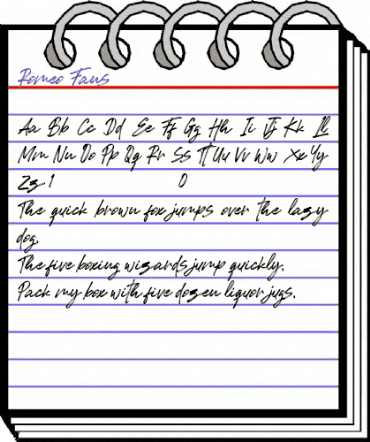 Romeo Fans
Aa Bb Cc Dd Ee Ff Gg Hh Ii Jj Kk Ll
Mm Nn Oo Pp Qq Rr Ss Tt Uu Vv Ww Xx Yy
Zz 1 0
The quick brown fox jumps over the lazy
dog.
The five boxing wizards jump quickly.
Pack my box with five dozen liquor jugs.